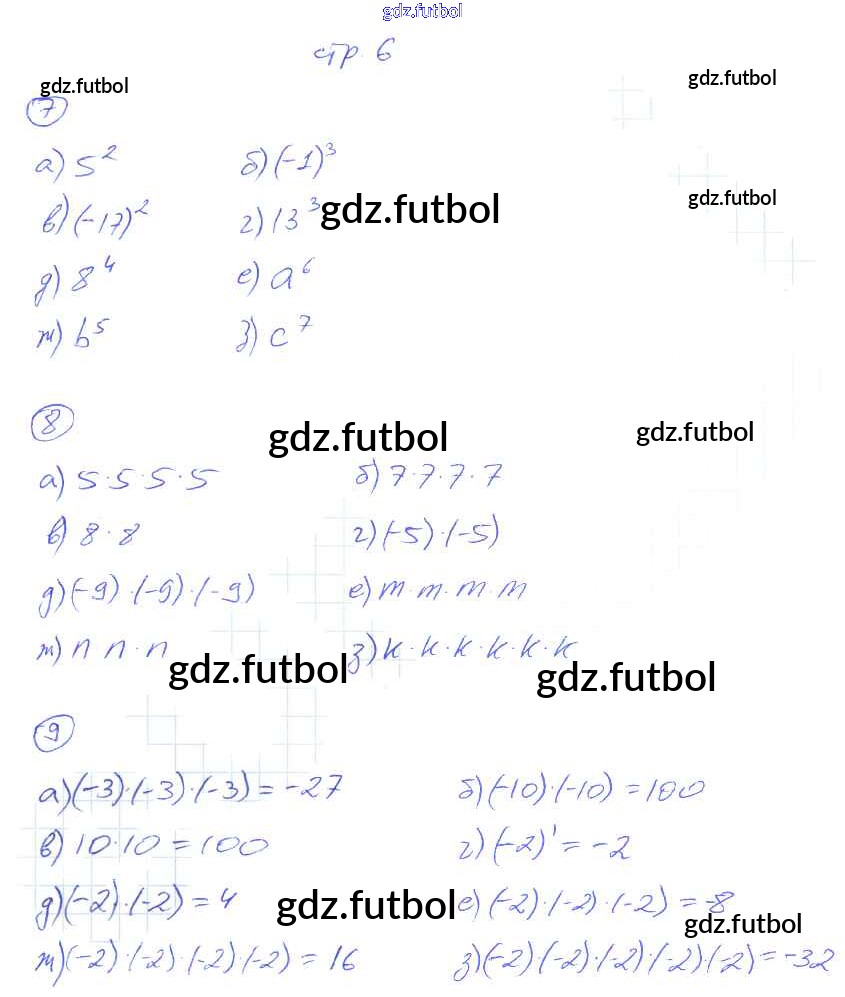 gdz.futbol
стр. 6
gdz.futbol gdz.futbol
7
а) 5² б) (-1)³
в) (-17)² г) 13³ gdz.futbol gdz.futbol
д) 8⁴ е) a⁶
ж) b⁵ з) c⁷
8
gdz.futbol gdz.futbol
а) 5·5·5·5 б) 7·7·7·7
в) 8·8 г) (-5)·(-5)
д) (-9)·(-9)·(-9) е) m·m·m·m
ж) n n·n з) k·k·k·k·k·k
gdz.futbol gdz.futbol
9
а) (-3)·(-3)·(-3) = -27 б) (-10)·(-10) = 100
в) 10·10 = 100 г) (-2)¹ = -2
д) (-2)·(-2) = 4 gdz.futbol е) (-2)·(-2)·(-2) = -8
gdz.futbol
ж) (-2)·(-2)·(-2)·(-2) = 16 з) (-2)·(-2)·(-2)·(-2)·(-2) = -32